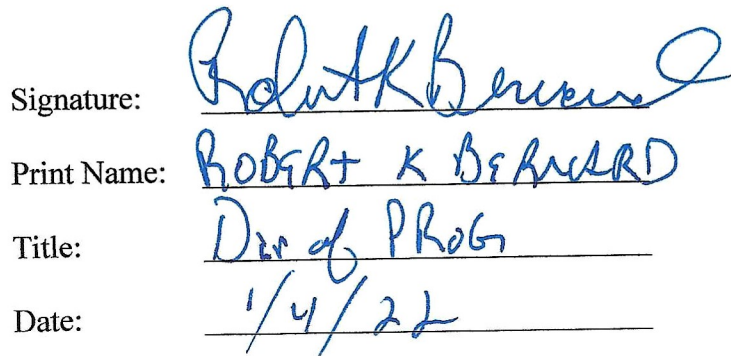 Signature: Robert K Bernard
Print Name: ROBERT K BERNARD
Title: Dir of PROG
Date: 1/4/22